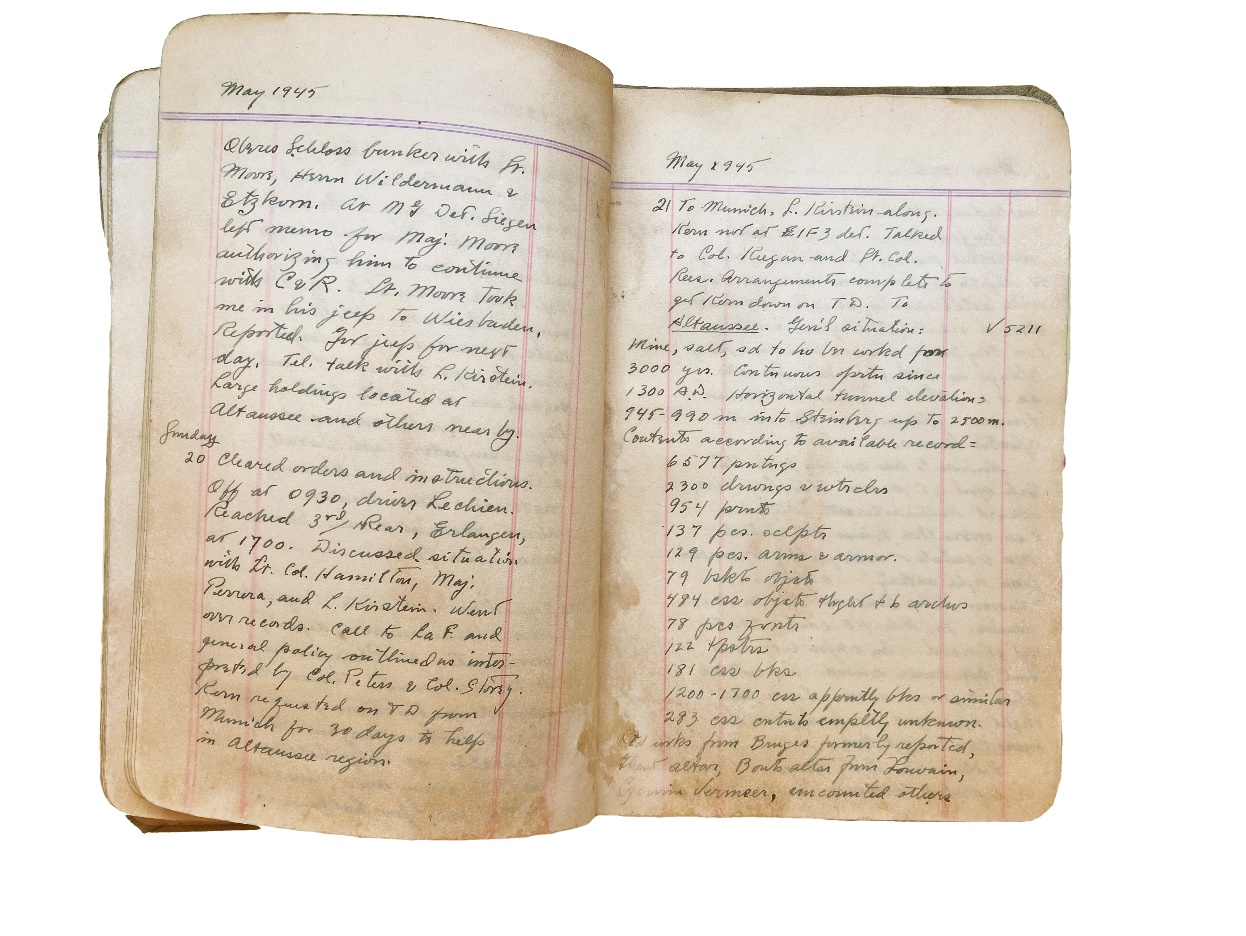 May 1945
Oberes Schloss bunker with Lt.
Moore, Herrn Wildermann &
Etzkorn. At MG Det. Siegen
left memo for Maj. Moore
authorizing him to continue
with C&R. Lt. Moore took
me in his jeep to Wiesbaden.
Reported. Got jeep for next
day. Tel. talk with L. Kirstein.
Large holdings located at
Altaussee and others near by.
Sunday
20 Cleared orders and instructions.
Off at 0930, driver Lechien.
Reached 3rd/Rear, Erlangen,
at 1700. Discussed situation
with Lt. Col. Hamilton, Maj.
Perrera, and L. Kirstein. Went
over records. Call to La F. and
general policy outlined as inter-
preted by Col. Peters & Col. Storey.
Kern requested on TD from
Munich for 30 days to help
in Altaussee region.
May 1945
21 To Munich, L. Kirstein along.
Kern not at E1F3 det. Talked
to Col. Keegan and Lt. Col.
Rae. Arrangements complete to
get Kern down on T.D. To
Altaussee. Gen'l situation: √ 5211
Mine, salt, sd to ho bn workd from
3000 yrs. Contnuous opertn since
1300 A.D. Horizontal tunnel elevation=
945-990 m into Steinberg up to 2500m.
Contents according to available record=
6577 pntngs
2300 drwngs & wtrclrs
954 prnts
137 pcs. sclpts
129 pcs. arms & armor.
79 bskts objcts
484 css objcts thght t b archvs
78 pcs frnts
122 tpstrs
181 css bks
1200-1700 css appntly bks or similar
283 css cntnts cmpltly unknown.
works from Bruges formerly reported,
Ghent altar, Bouts altar from Louvain,
Czernin Vermeer, uncounted others